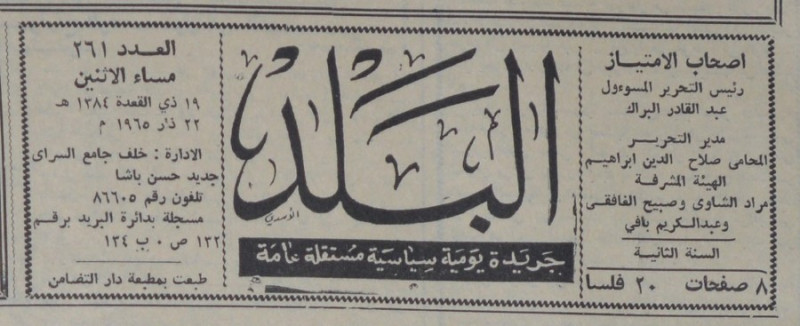 اصحاب الامتياز
رئيس التحرير المسوءول
عبد القادر البراك
مدير التحريـر
المحامى صلاح الدين ابراهيم
الهيئة المشرفة
مراد الشاوى وصبيح الغافقى
وعبدالكريم بافي
السنة الثانية
٨ صفحات ٢٠ فلسا
البلد
الأسدي
جريدة يومية سياسية مستقلة عامة
العـدد ٢٦١
مساء الاثنين
١٩ ذي القعدة ١٣٨٤ هـ
٢٢ ذار ١٩٦٥ م
الادارة : خلف جامع السراى
جديد حسن باشا
تلفون رقم ٨٦٦٠٥
مسجلة بدائرة البريد برقم
١٣٢ ص ٠ ب ١٣٤
طبعت بمطبعة دار التضامن